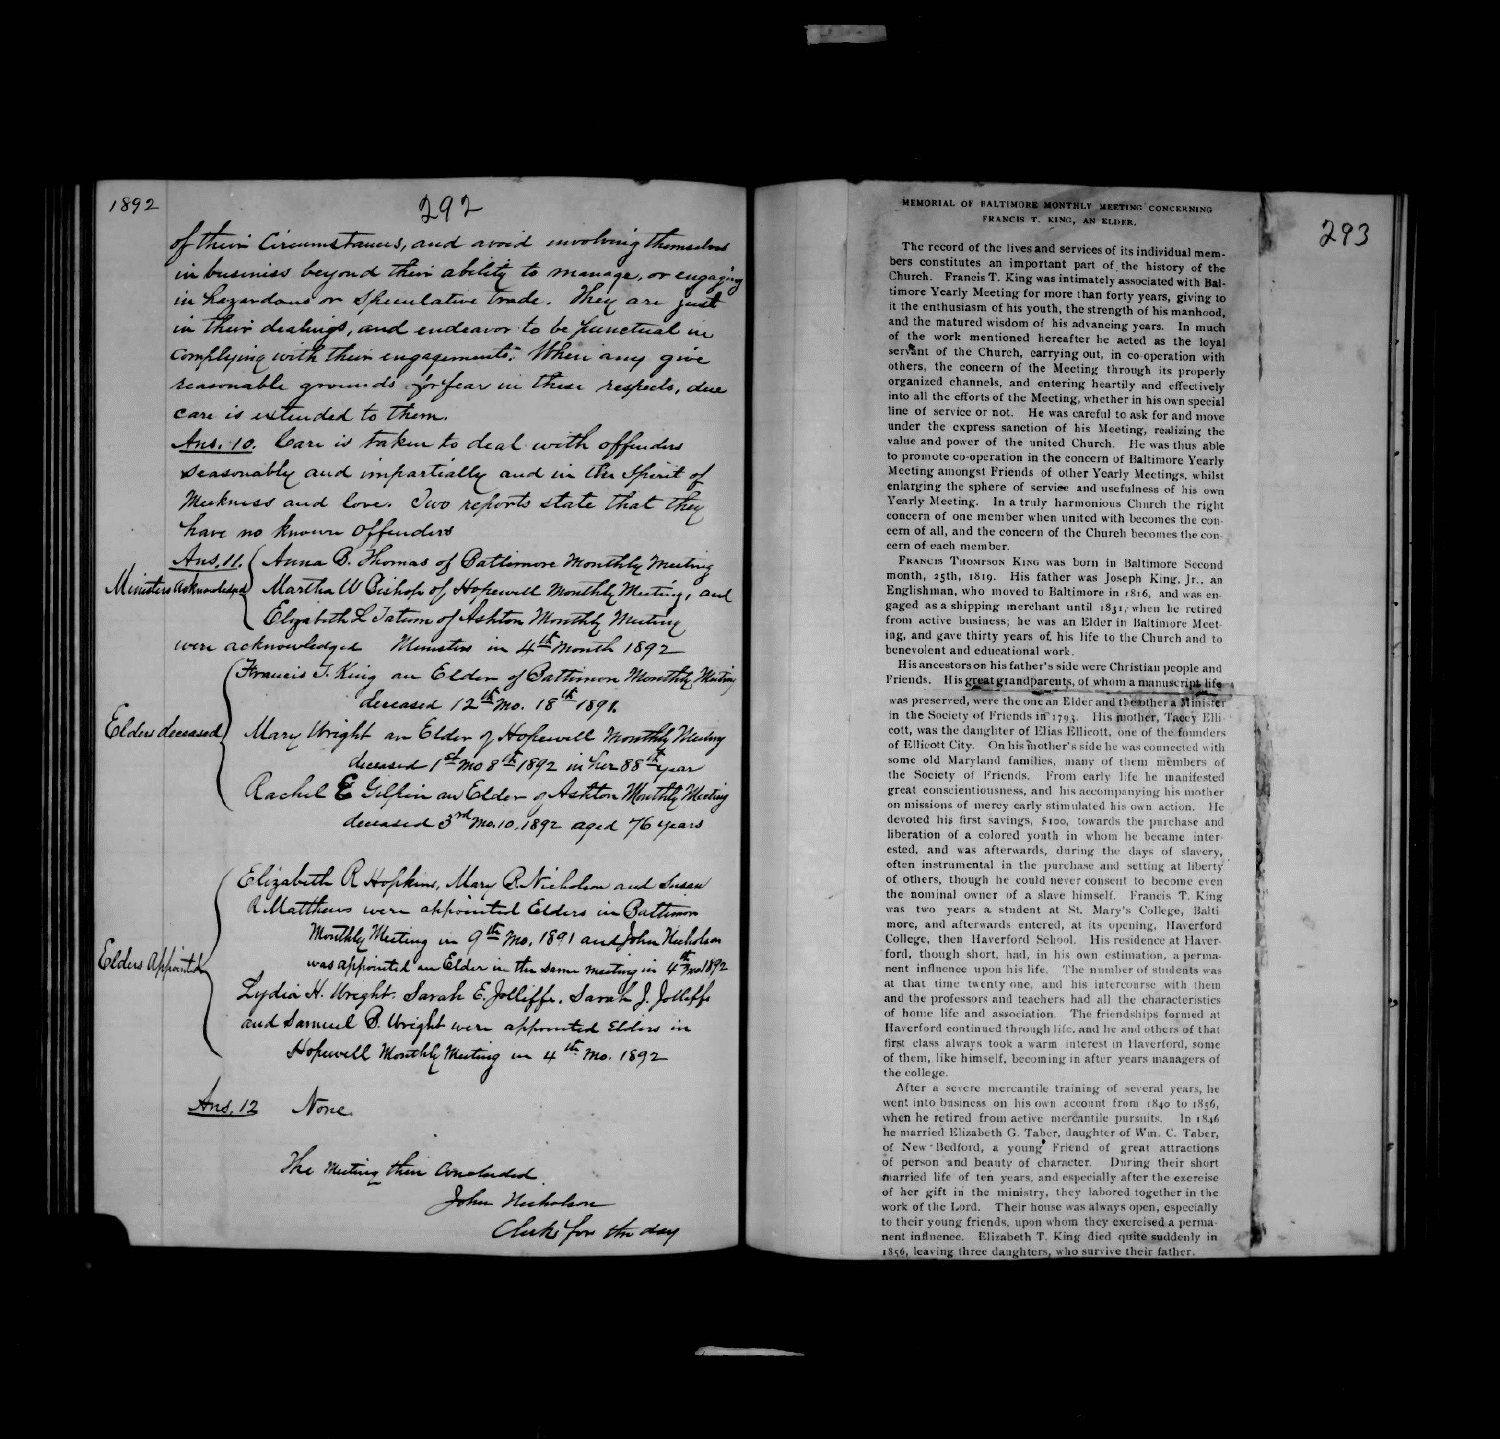 1892
292
of their Circumstances, and avoid involving themselves
in business beyond their ability to manage, or engaging
in hazardous or Speculative trade. They are just
in their dealings, and endeavor to be punctual in
complying with their engagements. When any give
reasonable grounds for fear in these respects, due
care is extended to them.
Ans. 10. Care is taken to deal with offenders
seasonably and impartially and in the Spirit of
Meekness and love. Two reports state that they
have no known offenders
Ans. 11. Anna B. Thomas of Baltimore Monthly Meeting
Ministers Acknowledged Martha W Bishop of Hopewell Monthly Meeting, and
Elizabeth L Tatum of Ashton Monthly Meeting
were acknowledged Ministers in 4th Month 1892
Francis T. King an Elder of Baltimore Monthly Meeting
deceased 12th Mo. 18th 1891.
Elders deceased Mary Wright an Elder of Hopewell Monthly Meeting
deceased 1st Mo 8th 1892 in her 88th year
Rachel E Gilpin an Elder of Ashton Monthly Meeting
deceased 3rd Mo. 10. 1892 aged 76 years
Elizabeth R Hopkins, Mary B. Nicholson and Susan
R Matthews were appointed Elders in Baltimore
Monthly Meeting in 9th Mo. 1891 and John Nicholson
Elders Appointed was appointed an Elder in the same meeting in 4th Mo 1892
Lydia H. Wright. Sarah E. Jolliffe, Sarah J. Jolliffe
and Samuel B. Wright were appointed Elders in
Hopewell Monthly Meeting in 4th Mo. 1892
Ans. 12 None.
The Meeting then Concluded.
John Nicholson
Clerk for the day
MEMORIAL OF BALTIMORE MONTHLY MEETING CONCERNING
FRANCIS T. KING, AN ELDER.
293
The record of the lives and services of its individual mem-
bers constitutes an important part of the history of the
Church. Francis T. King was intimately associated with Bal-
timore Yearly Meeting for more than forty years, giving to
it the enthusiasm of his youth, the strength of his manhood,
and the matured wisdom of his advancing years. In much
of the work mentioned hereafter he acted as the loyal
servant of the Church, carrying out, in co-operation with
others, the concern of the Meeting through its properly
organized channels, and entering heartily and effectively
into all the efforts of the Meeting, whether in his own special
line of service or not. He was careful to ask for and move
under the express sanction of his Meeting, realizing the
value and power of the united Church. He was thus able
to promote co-operation in the concern of Baltimore Yearly
Meeting amongst Friends of other Yearly Meetings, whilst
enlarging the sphere of service and usefulness of his own
Yearly Meeting. In a truly harmonious Church the right
concern of one member when united with becomes the con-
cern of all, and the concern of the Church becomes the con-
cern of each member.
FRANCIS THOMPSON KING was born in Baltimore Second
month, 25th, 1819. His father was Joseph King, Jr., an
Englishman, who moved to Baltimore in 1816, and was en-
gaged as a shipping merchant until 1831, when he retired
from active business; he was an Elder in Baltimore Meet-
ing, and gave thirty years of his life to the Church and to
benevolent and educational work.
His ancestors on his father's side were Christian people and
Friends. His great grandparents, of whom a manuscript life
was preserved, were the one an Elder and the other a Minister
in the Society of Friends in 1793. His mother, Tacey Elli-
cott, was the daughter of Elias Ellicott, one of the founders
of Ellicott City. On his mother's side he was connected with
some old Maryland families, many of them members of
the Society of Friends. From early life he manifested
great conscientiousness, and his accompanying his mother
on missions of mercy early stimulated his own action. He
devoted his first savings, $100, towards the purchase and
liberation of a colored youth in whom he became inter-
ested, and was afterwards, during the days of slavery,
often instrumental in the purchase and setting at liberty
of others, though he could never consent to become even
the nominal owner of a slave himself. Francis T. King
was two years a student at St. Mary's College, Balti
more, and afterwards entered, at its opening, Haverford
College, then Haverford School. His residence at Haver-
ford, though short, had, in his own estimation, a perma-
nent influence upon his life. The number of students was
at that time twenty one, and his intercourse with them
and the professors and teachers had all the characteristics
of home life and association. The friendships formed at
Haverford continued through life, and he and others of that
first class always took a warm interest in Haverford, some
of them, like himself, becoming in after years managers of
the college.
After a severe mercantile training of several years, he
went into business on his own account from 1840 to 1856,
when he retired from active mercantile pursuits. In 1846
he married Elizabeth G. Taber, daughter of Wm. C. Taber,
of New Bedford, a young Friend of great attractions
of person and beauty of character. During their short
married life of ten years, and especially after the exercise
of her gift in the ministry, they labored together in the
work of the Lord. Their house was always open, especially
to their young friends, upon whom they exercised a perma-
nent influence. Elizabeth T. King died quite suddenly in
1856, leaving three daughters, who survive their father.